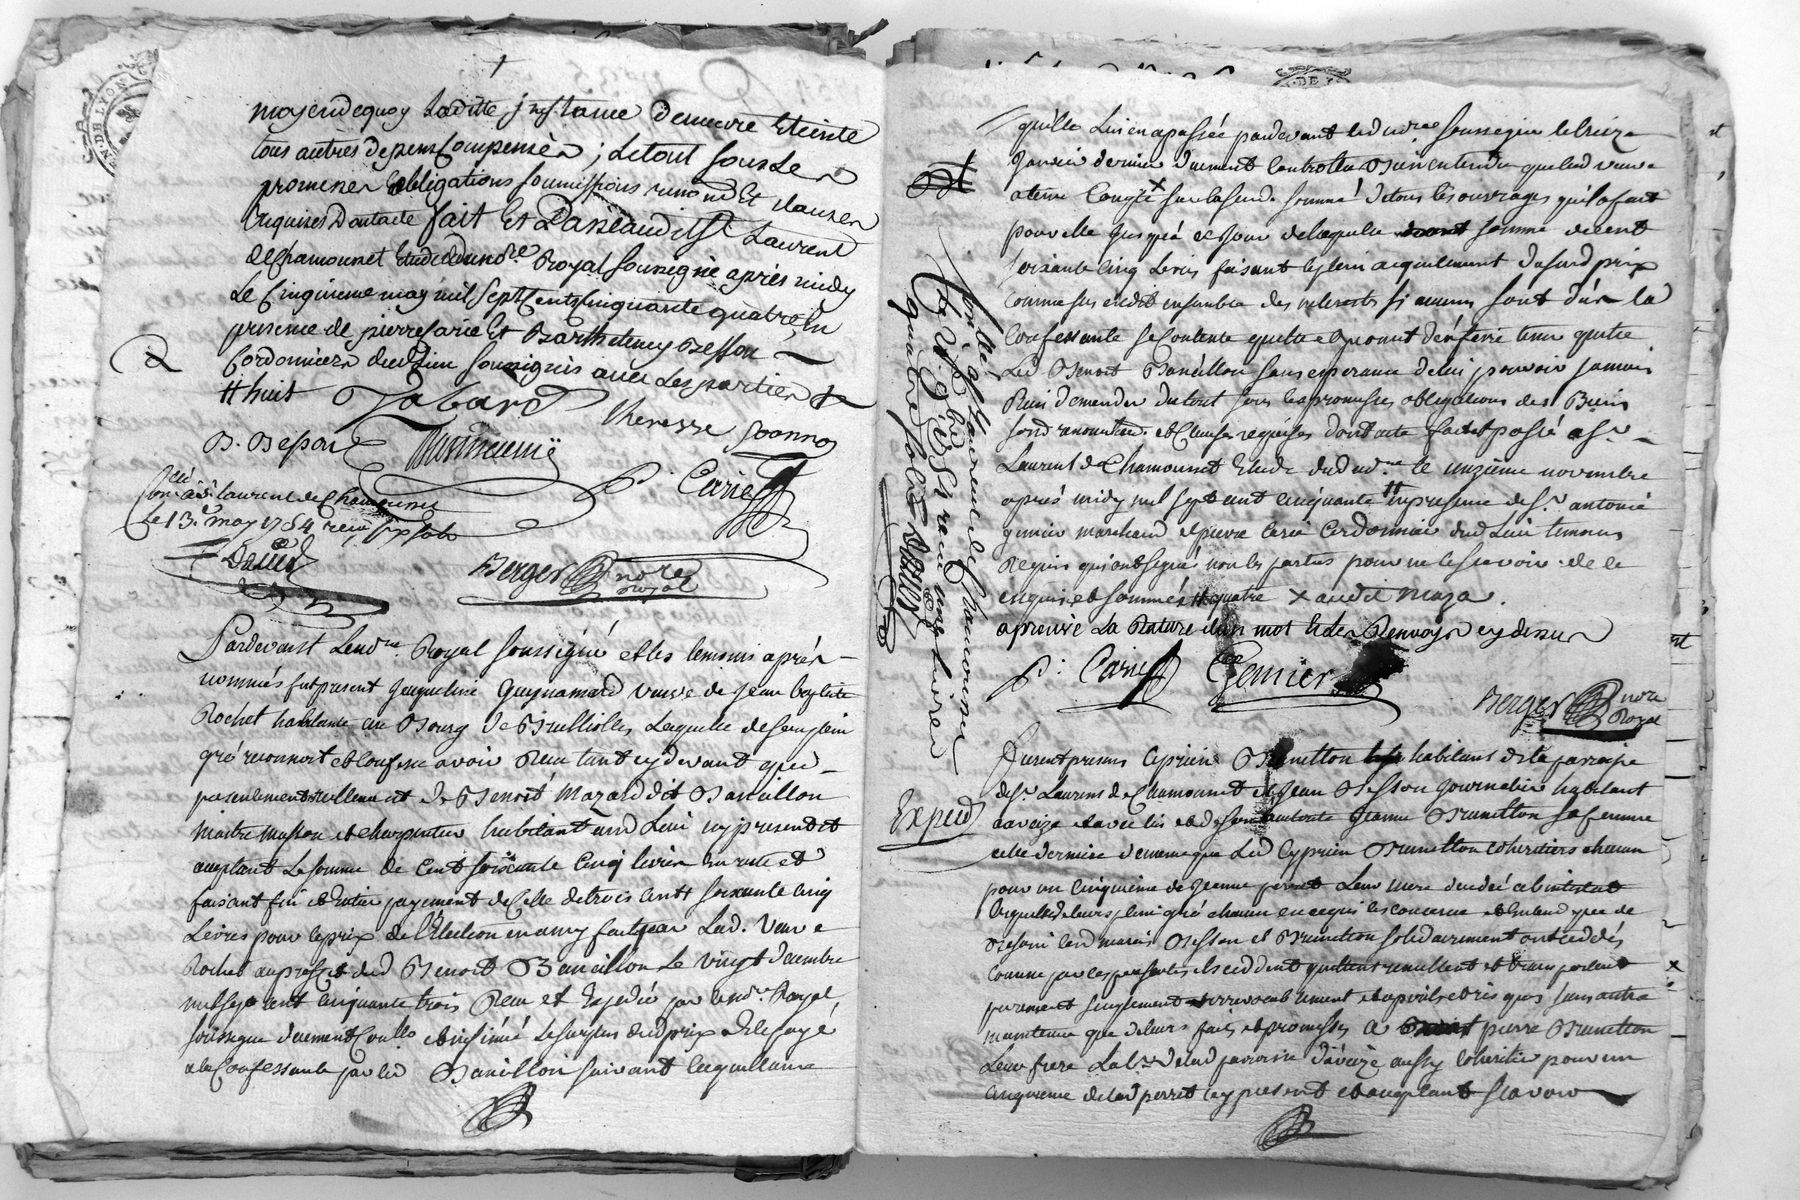 moyendequoy Laditte jnstance demeure Eteinte
tous autres depens Compensèr ; Le tout sous Les
promesses obligations soumissions renond Et clauses
Requises Dont acte fait Et Passé audit St Laurent
de Chamousset Etude dud no.re Royal soussigné aprés midy
Le Cinquieme may mil sept cents cinquante quatre, En
presence de pierre Carie Et Barthelemy Besson
Cordonniers dud Lieu soussignés avec Les parties
# huit Zabard Theresse Joannon
B. Besson P. Carie
Con.lé à St laurent de Chamousset
Le 13.e may 1754 reçu six sols
Berger no.re Royal
Pardevant Le no.re Royal soussigné et les temoins aprés
nommés fut present Jacqueline Guynamard veuve de Jean Baptiste
Rochet habitante au Bourg de Brulliolles Laquelle de son plein
gré reconnoit et Confesse avoir Receu tant cy devant que
presentement Reellement de Benoit Mazard dit Bancillon
Maitre Masson et charpentier habitant aud Lieu cy present et
acceptant La somme de Cent soixante Cinq livres en reste et
faisant fin et Entier payement de Celle de trois cents soixante cinq
Livres pour le prix de l'Election en amy faite par Lad. Veuve
Rochet au proffit dud Benoit Bancillon Le vingt decembre
mil sept cent cinquante trois Receu et Expedié par le no.re Royal
soussigné duement Con.llé et insinué Le surplus dud prix Estés payé
a la Confessante par led Bancillon suivant la quittance
quelle Luy en a passée pardevant led no.re soussigné le treize
Janvier dernier duement Controllée Bien entendu que lad veuve
a tenu Compte x sur lasusd. somme de tous les ouvrages qu'il a fait
pour elle jusqu'à ce Jour de laquelle somme de cent
soixante cinq Livres faisant le plein acquittement dususd prix
comme sus est dit ensemble des interests si aucuns sont dùs la
Confessante se Contente quitte et promet d'en faire tenir quitte
Led Benoit Bancillon sans esperance de lui pouvoir jamais
Rien demander du tout sous les promesses obligations des Biens
soud renonciat. et Clauses requises dont acte fait et passé a St
Laurent de Chamousset Etude dud no.re le unzieme novembre
aprés midy mil sept cent cinquante # en presence de Sr. antoine
genier marchand et pierre Carie Cordonnier dud Lieu temoins
Requis qui ont signés non les parties pour ne le scavoir de ce
enquis et sommés # quatre x audit Maza.
aprouvé La Rature d'un mot Et les Renvoys cy dessus
P: Carie Genier Berger no.re Royal
Con.llé a St Laurent de Chamousset
quatre sols
Exped
Furent presents Ciprien Brunetton habitans de la parroisse
de St. Laurens de Chamousset et Jean Besson Journalier habitant
davaize et avec lui et de son autorité Jeanne Brunetton sa femme
cette derniere de meme que Led Cyprien Brunetton coheritiers chacun
pour un Cinquieme de Jeanne perret Leur Mere decedée ab intestat
Lesquels de leurs plein gré chacun en ce qui les concerne
Besson led mariés Besson et Brunetton solidairement ont ceddés
Comme par ces presentes ils ceddent quittent remettent et transportent
purement simplement et irrevocablement et a perils et risques sans autre
maintenue que de leurs faits et promesses a pierre Brunetton
Leur frere Lab.r de lad parroisse d'avaize aussy Coheritier pour un
cinquieme de lad perret cy present et acceptant scavoir